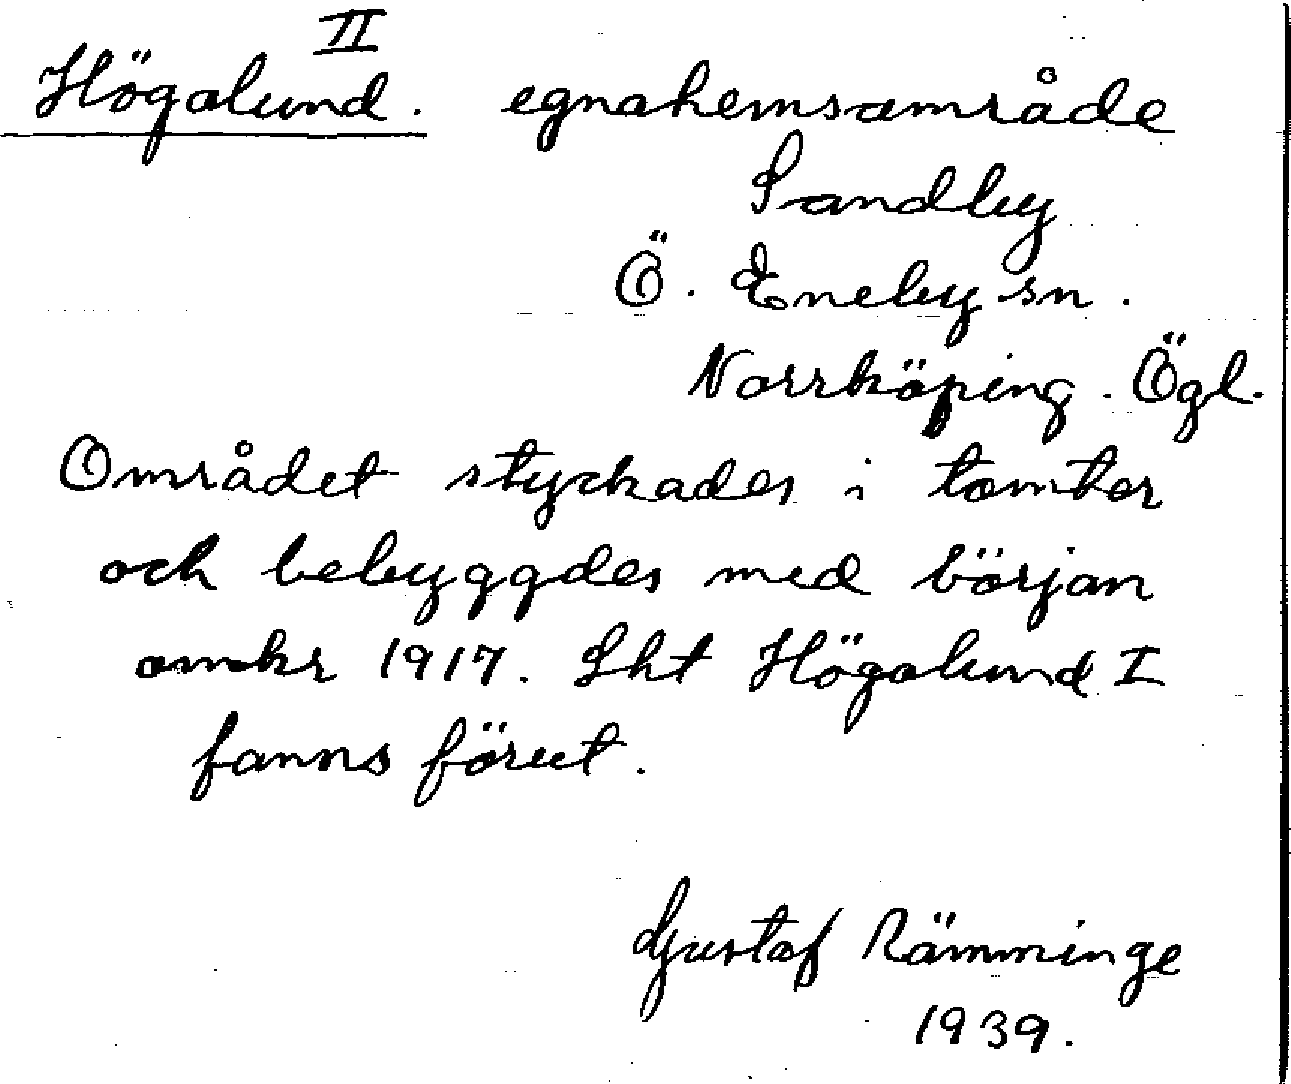 II
Högalund. egnahemsområde
Sandby
Ö. Eneby sn.
Norrköping. Ögl.
Området styckades i tomter
och bebyggdes med början
omkr 1917. Lht Högalund I
fanns förut.
Gustaf Rämminge
1939.